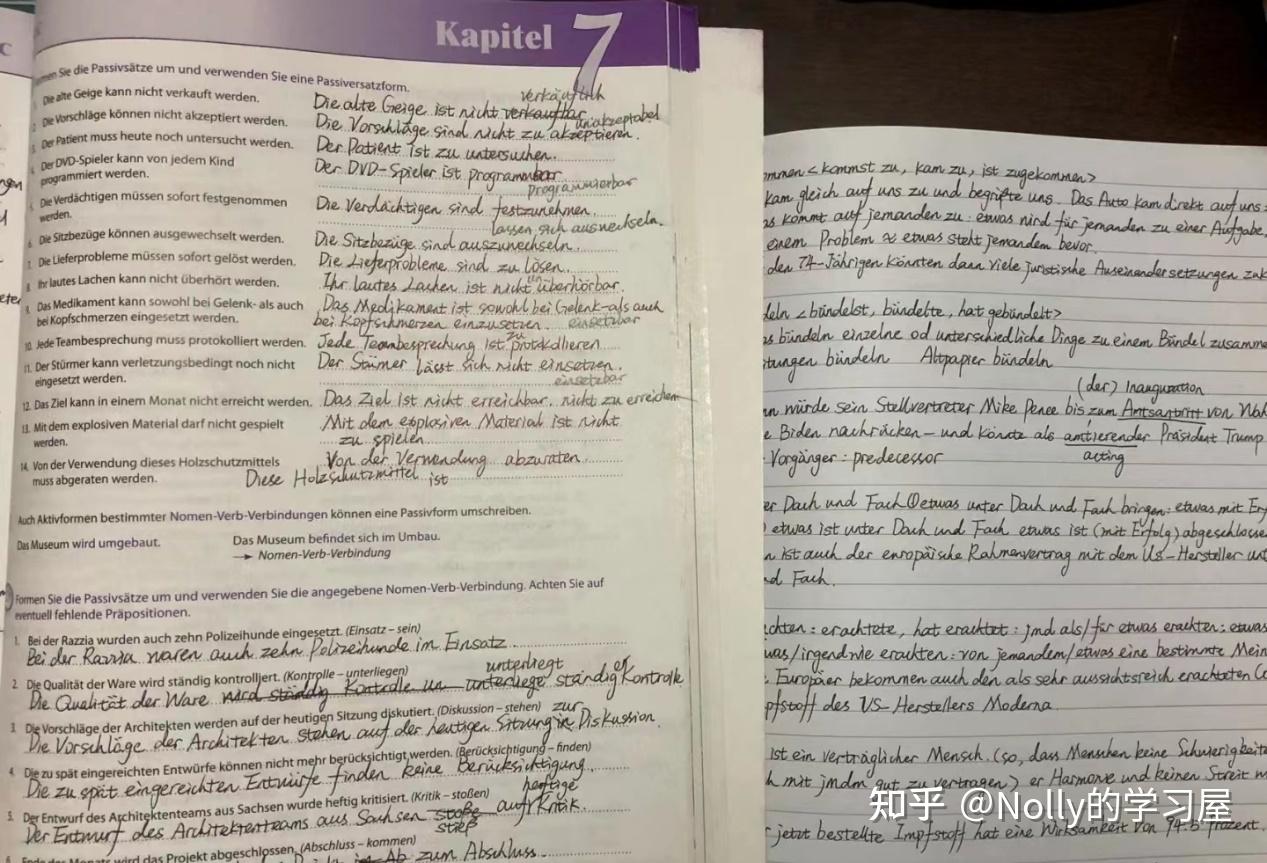 Kapitel 7
Sie die Passivsätze um und verwenden Sie eine Passiversatzform.
Die alte Geige kann nicht verkauft werden.
verkäuflich
Die alte Geige ist nicht verkaufbar.
2. Die Vorschläge können nicht akzeptiert werden.
unakzeptabel
Die Vorschläge sind nicht zu akzeptieren.
3. Der Patient muss heute noch untersucht werden.
Der Patient ist zu untersuchen.
4. Der DVD-Spieler kann von jedem Kind
programmiert werden.
Der DVD-Spieler ist programmbar
programmierbar
5. Die Verdächtigen müssen sofort festgenommen
werden.
Die Verdächtigen sind festzunehmen.
lassen sich auswechseln.
6. Die Sitzbezüge können ausgewechselt werden.
Die Sitzbezüge sind auszuwechseln.
7. Die Lieferprobleme müssen sofort gelöst werden.
Die Lieferprobleme sind zu lösen.
8. Ihr lautes Lachen kann nicht überhört werden.
un
Ihr lautes Lachen ist nicht überhörbar.
9. Das Medikament kann sowohl bei Gelenk- als auch
bei Kopfschmerzen eingesetzt werden.
Das Medikament ist sowohl bei Gelenk-als auch
bei Kopfschmerzen einzusetzen. einsetzbar
10. Jede Teambesprechung muss protokolliert werden.
zu
Jede Teambesprechung ist protokollieren.
11. Der Stürmer kann verletzungsbedingt noch nicht
eingesetzt werden.
Der Stürmer lässt sich nicht einsetzen.
einsetzbar
12. Das Ziel kann in einem Monat nicht erreicht werden.
Das Ziel ist nicht erreichbar. nicht zu erreichen
13. Mit dem explosiven Material darf nicht gespielt
werden.
Mit dem explosiven Material ist nicht
zu spielen
14. Von der Verwendung dieses Holzschutzmittels
muss abgeraten werden.
Von der Verwendung abzuraten.
Diese Holzschutzmittel ist
Auch Aktivformen bestimmter Nomen-Verb-Verbindungen können eine Passivform umschreiben.
Das Museum wird umgebaut.
Das Museum befindet sich im Umbau.
→ Nomen-Verb-Verbindung
Formen Sie die Passivsätze um und verwenden Sie die angegebene Nomen-Verb-Verbindung. Achten Sie auf
eventuell fehlende Präpositionen.
1. Bei der Razzia wurden auch zehn Polizeihunde eingesetzt. (Einsatz – sein)
Bei der Razzia waren auch zehn Polizeihunde im Einsatz.
2. Die Qualität der Ware wird ständig kontrolliert. (Kontrolle – unterliegen)
unterliegt er
Die Qualität der Ware wird ständig Kontrolle un unterliege ständig Kontrolle
3. Die Vorschläge der Architekten werden auf der heutigen Sitzung diskutiert. (Diskussion – stehen)
zur
Die Vorschläge der Architekten stehen auf der heutigen Sitzung in Diskussion.
4. Die zu spät eingereichten Entwürfe können nicht mehr berücksichtigt werden. (Berücksichtigung – finden)
Die zu spät eingereichten Entwürfe finden keine Berücksichtigung.
5. Der Entwurf des Architektenteams aus Sachsen wurde heftig kritisiert. (Kritik – stoßen)
heftige
Der Entwurf des Architektenteams aus Sachsen stoße auf Kritik.
stieß
wird das Projekt abgeschlossen. (Abschluss – kommen)
zum Abschluss.
mmen <kommst zu, kam zu, ist zugekommen>
kam gleich auf uns zu und begrüßte uns. Das Auto kam direkt auf uns
as kommt auf jemanden zu: etwas wird für jemanden zu einer Aufgabe.
einem Problem ≈ etwas steht jemanden bevor.
den 74-Jährigen könnten dann viele juristische Auseinandersetzungen zuk
deln <bündelst, bündelte, hat gebündelt>
as bündeln einzelne od unterschiedliche Dinge zu einem Bündel zusamme
tungen bündeln Altpapier bündeln
(der) Inauguration
nn würde sein Stellvertreter Mike Pence bis zum Amtsantritt von
e Biden nachrücken – und könnte als amtierender Präsident Trump
Vorgänger: predecessor
acting
er Dach und Fach ① etwas unter Dach und Fach bringen: etwas mit Er
etwas ist unter Dach und Fach etwas ist (mit Erfolg) abgeschlosse
n ist auch der europäische Rahmenvertrag mit dem US-Hersteller
d Fach.
chten: erachtete, hat erachtet: jmd als/für etwas erachten: etwas
was/irgendwie erachten: von jemandem/etwas eine bestimmte Mein
Europäer bekommen auch den als sehr aussichtsreich erachteten
pfstoff des US-Herstellers Moderna.
ist ein verträglicher Mensch. (so, dass Menschen keine Schwierigkeite
h mit jmdm gut zu vertragen) er Harmonie und keinen Streit
r jetzt bestellte Impfstoff hat eine Wirksamkeit von 94.5 Prozent.
知乎 @Nolly的学习屋